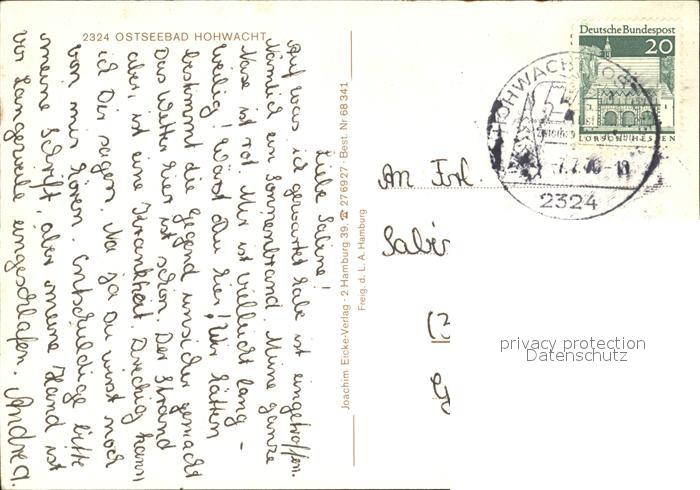 2324 OSTSEEBAD HOHWACHT
Liebe Sabine!
Auf was ich gewartet habe ist eingetroffen.
Nämlich ein Sonnenbrand. Meine ganze
Nase ist rot. Mir ist vielleicht lang-
weilig! Wärst Du hier! Wir hätten
bestimmt die Gegend unsicher gemacht
Das Wetter hier ist schön. Der Strand
aber, ist eine Krankheit. Dreckig kann
ich Dir sagen. Na ja du wirst noch
von mir hören. Entschuldige bitte
meine Schrift, aber meine Hand ist
vor Langweile eingeschlafen. Andrea.
Joachim Eicke-Verlag · 2 Hamburg 39, ☎ 276927 · Best. Nr 68341
Freig. d. L. A. Hamburg
Deutsche Bundespost
20
LORSCH/HESSEN
HOHWACHT
2324
An Frl.
Sabi
privacy protection
Datenschutz